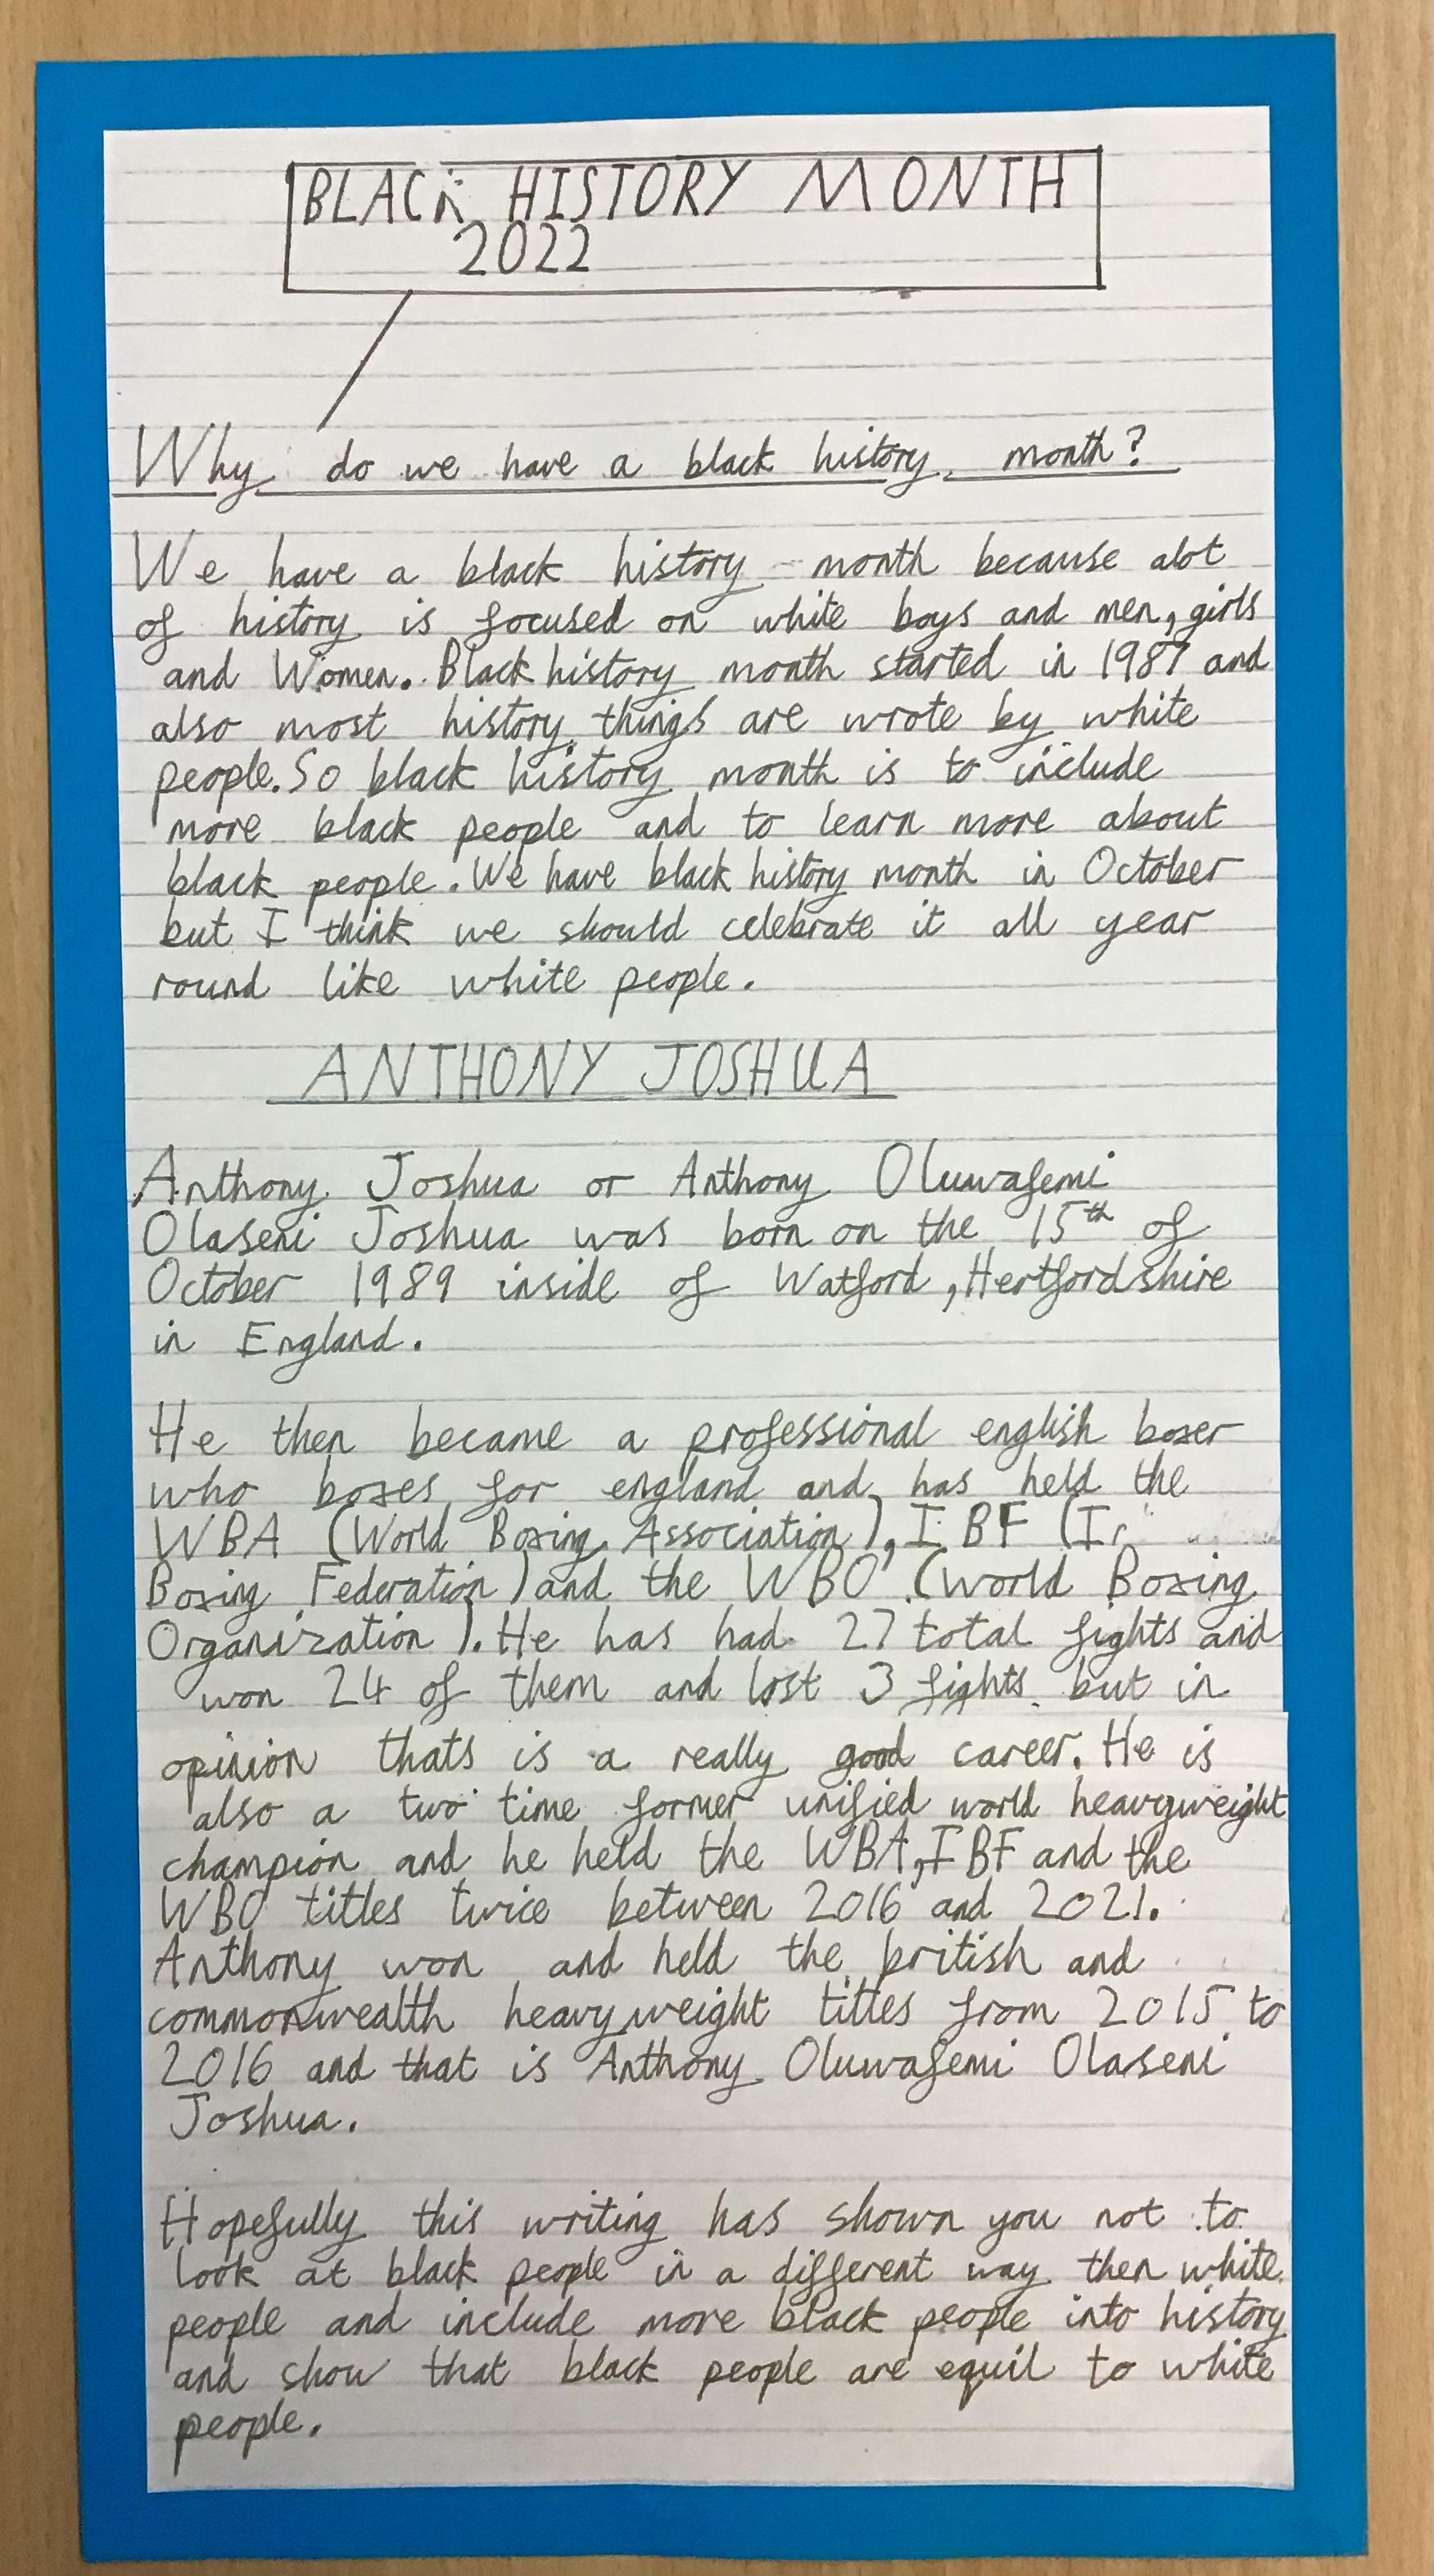 BLACK HISTORY MONTH
2022
Why do we have a black history month?
We have a black history month because alot
of history is focused on white boys and men, girls
and Women. Black history month started in 1987 and
also most history things are wrote by white
people. So black history month is to include
more black people and to learn more about
black people. We have black history month in October
but I think we should celebrate it all year
round like white people.
ANTHONY JOSHUA
Anthony Joshua or Anthony Oluwafemi
Olaseni Joshua was born on the 15th of
October 1989 inside of Watford, Hertfordshire
in England.
He then became a professional english boxer
who boxes for england and has held the
WBA (World Boxing Association), IBF (
Boxing Federation) and the WBO (World Boxing
Organization). He has had 27 total fights and
won 24 of them and lost 3 fights but in
opinion thats is a really good career. He is
also a two time former unified world heavyweight
champion and he held the WBA, IBF and the
WBO titles twice between 2016 and 2021.
Anthony won and held the british and
commonwealth heavyweight titles from 2015 to
2016 and that is Anthony Oluwafemi Olaseni
Joshua.
Hopefully this writing has shown you not to
look at black people in a different way then white
people and include more black people into history
and show that black people are equil to white
people.